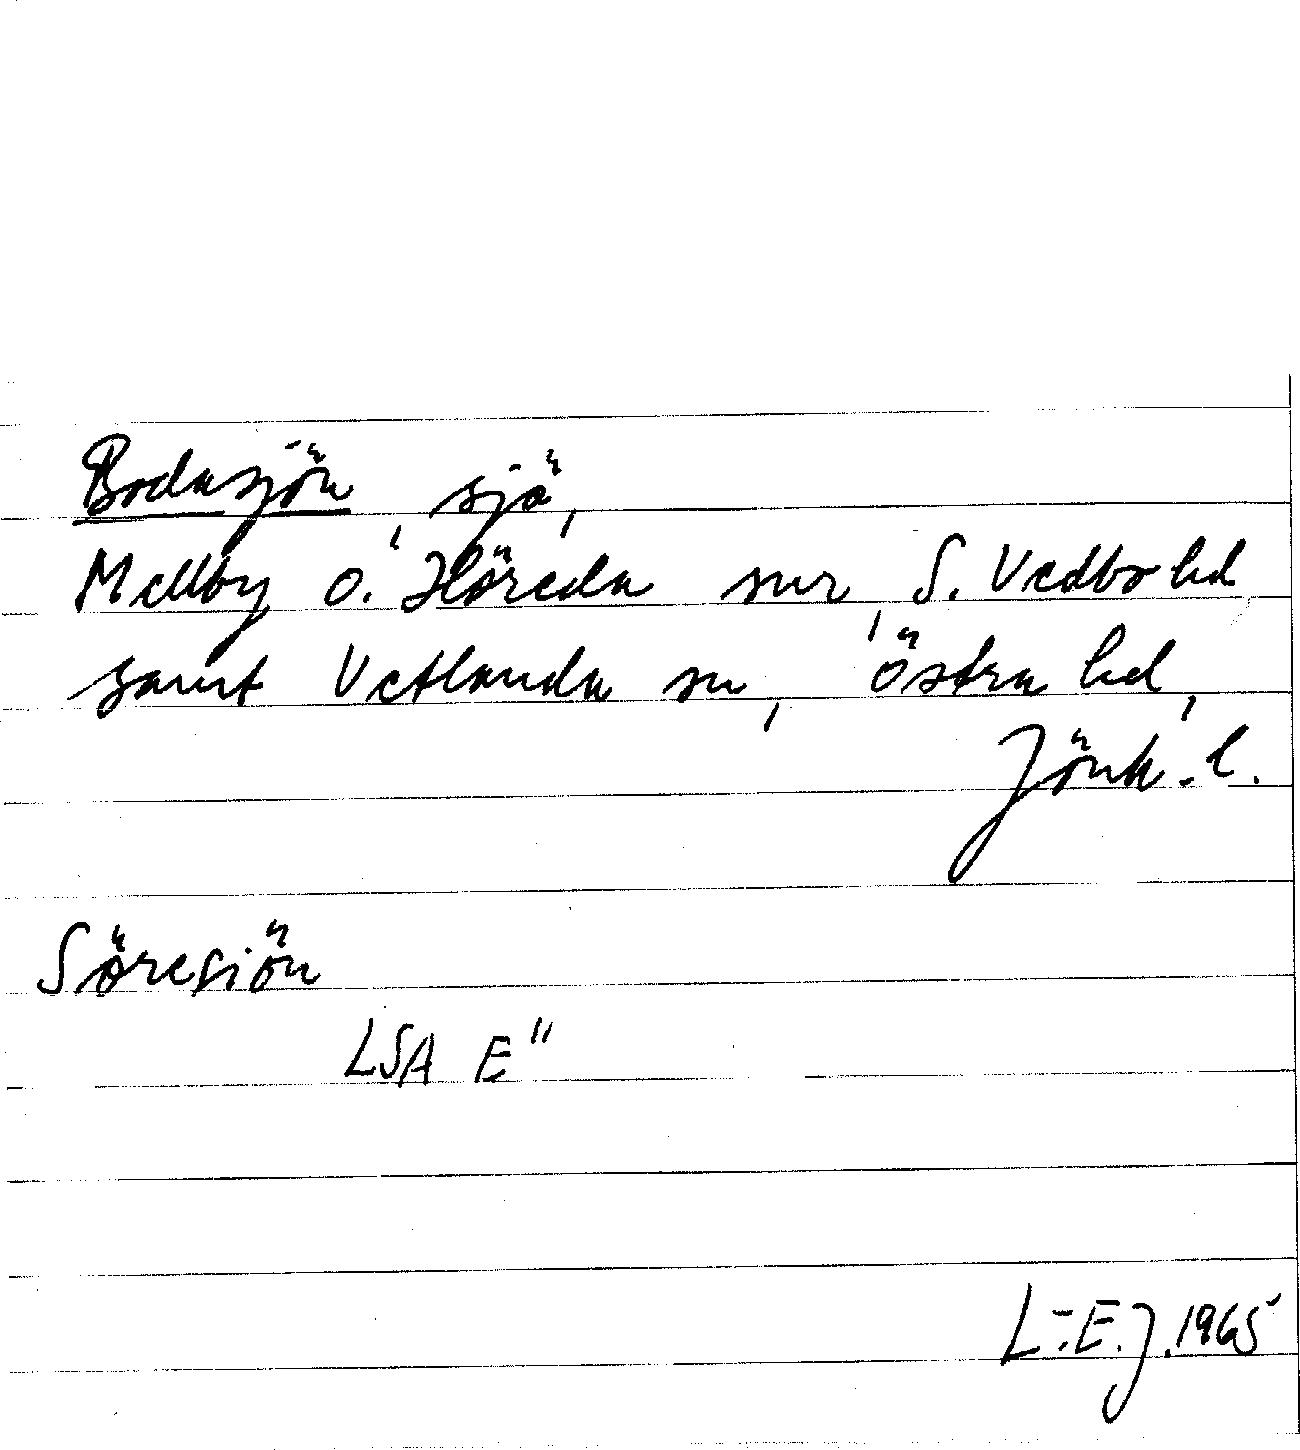 Bodasjön, sjö,
Mellby o. Höreda snr, S. Vedbo hd
samt Vetlanda sn, Östra hd,
Jönk. l.
Söresiön
LSA E"
L.-E.J. 1965